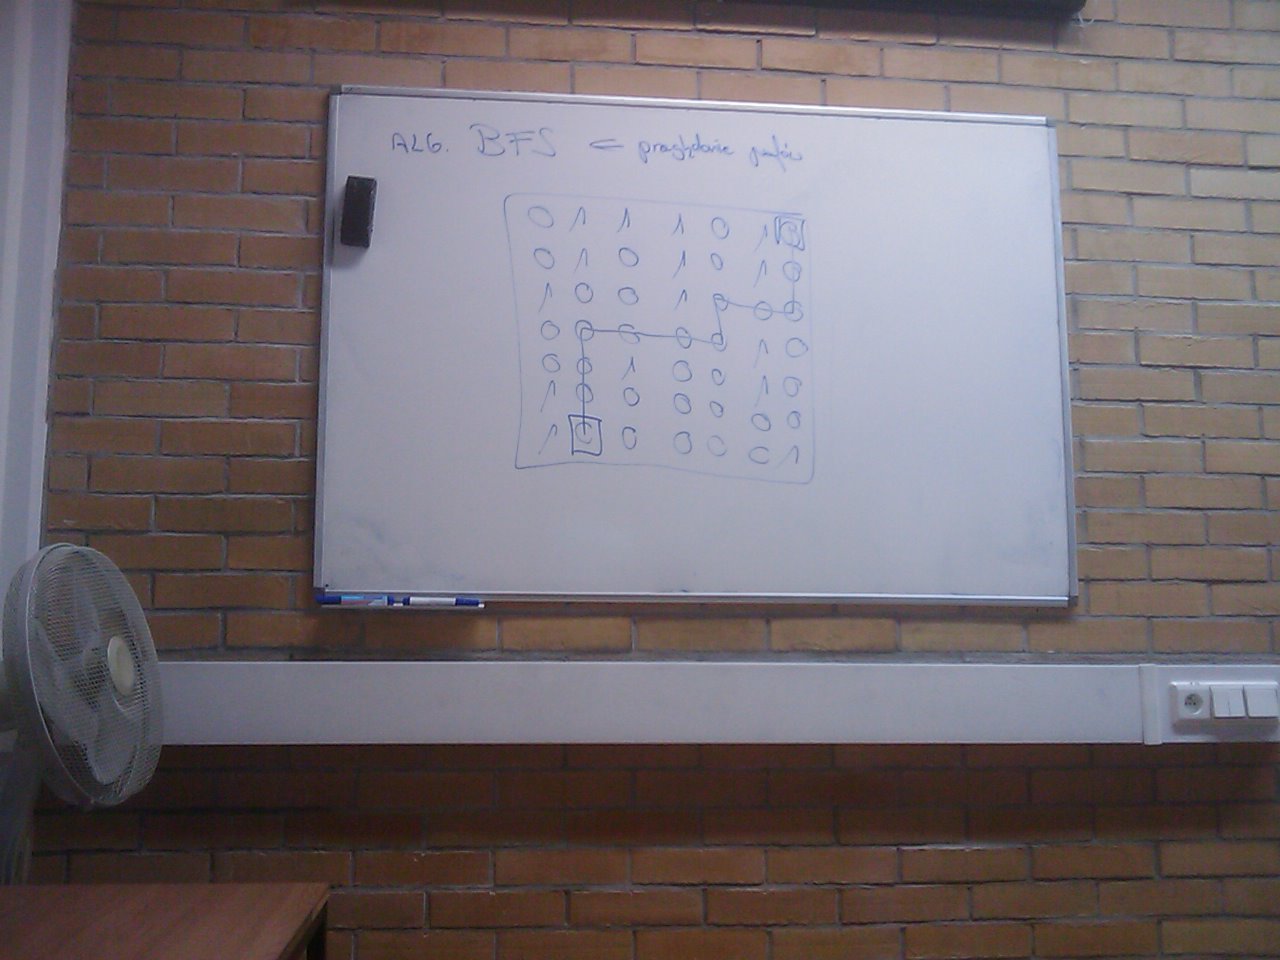 ALG. BFS ⊂ przeglądanie grafów
0 1 1 1 0 1 0
0 1 0 1 0 1 0
1 0 0 1 0 0 0
0 0 0 0 0 1 0
0 0 1 0 0 1 0
1 0 0 0 0 0 0
1 0 0 0 0 0 1